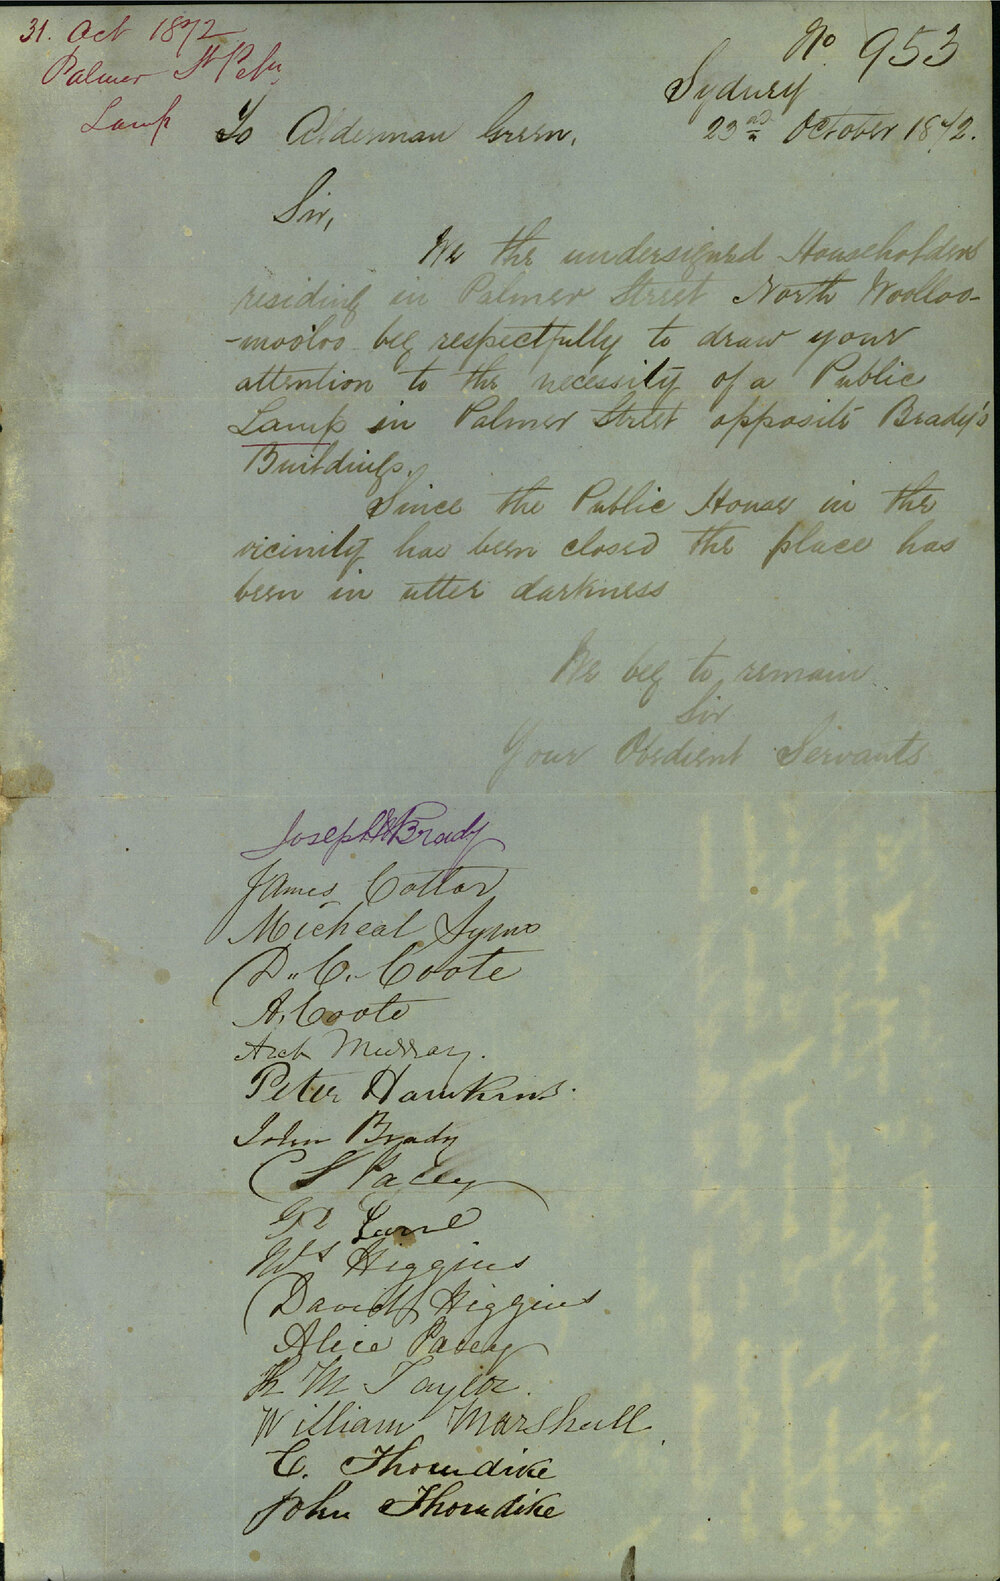 31. Oct 1872
Palmer St Petn
Lamp
No 953
Sydney
23rd October 1872.
To Alderman Green,
Sir,
We the undersigned Householders
residing in Palmer Street North Woolloo-
-mooloo beg respectfully to draw your
attention to the necessity of a Public
Lamp in Palmer Street opposite Brady's
Buildings.
Since the Public House in the
vicinity has been closed the place has
been in utter darkness
We beg to remain
Sir
Your Obedient Servants
Joseph Brady
James Cottor
Micheal Syms
D. C. Coote
A. Coote
Arch Murray.
Peter Hawkins.
John Brady
C S Pacey
Lane
Higgins
David Higgins
Alice Pacey
M Taylor.
William Marshall
C. Thorndike
John Thorndike